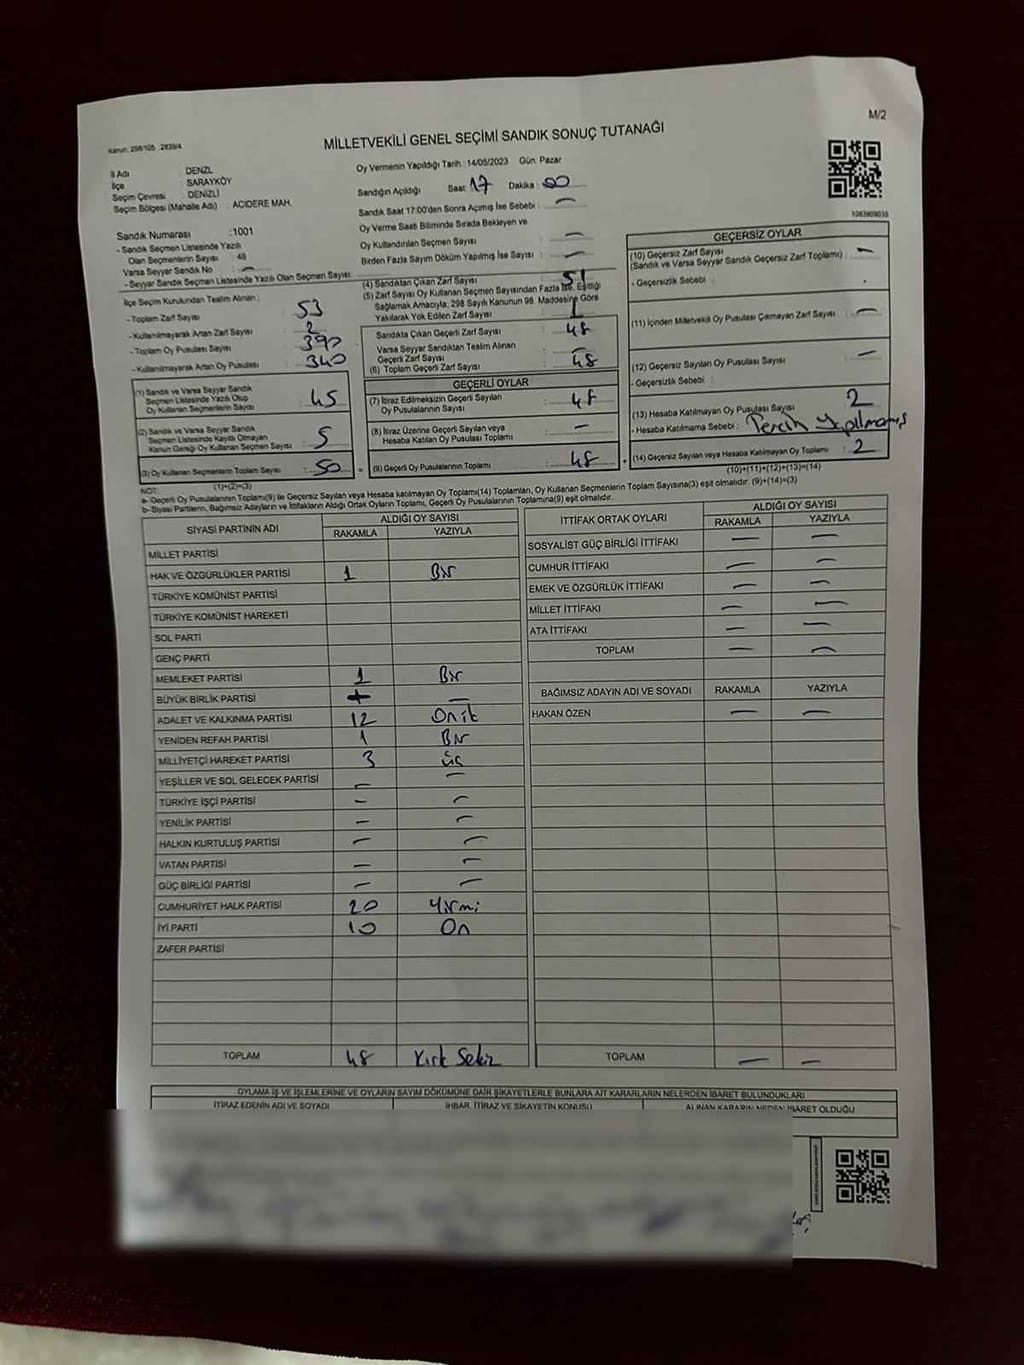 M/2
Kanun: 298/105 2839/4
MİLLETVEKİLİ GENEL SEÇİMİ SANDIK SONUÇ TUTANAĞI
İl Adı : DENİZLİ
İlçe : SARAYKÖY
Seçim Çevresi : DENİZLİ
Seçim Bölgesi (Mahalle Adı) : ACIDERE MAH.
Sandık Numarası :1001
- Sandık Seçmen Listesinde Yazılı
Olan Seçmenlerin Sayısı : 48
Varsa Seyyar Sandık No : –
- Seyyar Sandık Seçmen Listesinde Yazılı Olan Seçmen Sayısı:
İlçe Seçim Kurulundan Teslim Alınan :
- Toplam Zarf Sayısı : 53
- Kullanılmayarak Artan Zarf Sayısı : 2
- Toplam Oy Pusulası Sayısı : 390
- Kullanılmayarak Artan Oy Pusulası : 340
(1) Sandık ve Varsa Seyyar Sandık
Seçmen Listesinde Yazılı Olup
Oy Kullanan Seçmenlerin Sayısı : 45
(2) Sandık ve Varsa Seyyar Sandık
Seçmen Listesinde Kayıtlı Olmayan
Kanun Gereği Oy Kullanan Seçmen Sayısı : 5
(3) Oy Kullanan Seçmenlerin Toplam Sayısı : 50
(1)+(2)=(3)
Oy Vermenin Yapıldığı Tarih : 14/05/2023 Gün: Pazar
Sandığın Açıldığı Saat: 17 Dakika : 00
Sandık Saat 17:00'den Sonra Açımış İse Sebebi : –
Oy Verme Saati Bitiminde Sırada Bekleyen ve
Oy Kullandırılan Seçmen Sayısı : –
Birden Fazla Sayım Döküm Yapılmış İse Sayısı : –
(4) Sandıktan Çıkan Zarf Sayısı : 51
(5) Zarf Sayısı Oy Kullanan Seçmen Sayısından Fazla İse, Eşitliği
Sağlamak Amacıyla; 298 Sayılı Kanunun 98. Maddesine Göre
Yakılarak Yok Edilen Zarf Sayısı : 1
Sandıkta Çıkan Geçerli Zarf Sayısı : 48
Varsa Seyyar Sandıktan Teslim Alınan
Geçerli Zarf Sayısı : –
(6) Toplam Geçerli Zarf Sayısı : 48
GEÇERLİ OYLAR
(7) İtiraz Edilmeksizin Geçerli Sayılan
Oy Pusulalarının Sayısı : 48
(8) İtiraz Üzerine Geçerli Sayılan veya
Hesaba Katılan Oy Pusulası Toplamı : –
(9) Geçerli Oy Pusulalarının Toplamı : 48
1083909035
GEÇERSİZ OYLAR
(10) Geçersiz Zarf Sayısı : –
(Sandık ve Varsa Seyyar Sandık Geçersiz Zarf Toplamı)
- Geçersizlik Sebebi :
(11) İçinden Milletvekili Oy Pusulası Çıkmayan Zarf Sayısı : –
(12) Geçersiz Sayılan Oy Pusulası Sayısı : –
- Geçersizlik Sebebi :
(13) Hesaba Katılmayan Oy Pusulası Sayısı : 2
- Hesaba Katılmama Sebebi : Tercih yapılmamış
(14) Geçersiz Sayılan veya Hesaba Katılmayan Oy Toplamı : 2
(10)+(11)+(12)+(13)=(14)
NOT:
a- Geçerli Oy Pusulalarının Toplamı(9) ile Geçersiz Sayılan veya Hesaba katılmayan Oy Toplamı(14) Toplamları, Oy Kullanan Seçmenlerin Toplam Sayısına(3) eşit olmalıdır. (9)+(14)=(3)
b- Siyasi Partilerin, Bağımsız Adayların ve İttifakların Aldığı Ortak Oyların Toplamı, Geçerli Oy Pusulalarının Toplamına(9) eşit olmalıdır.
SİYASİ PARTİNİN ADI ALDIĞI OY SAYISI
RAKAMLA YAZIYLA
MİLLET PARTİSİ
HAK VE ÖZGÜRLÜKLER PARTİSİ 1 Bir
TÜRKİYE KOMÜNİST PARTİSİ
TÜRKİYE KOMÜNİST HAREKETİ
SOL PARTİ
GENÇ PARTİ
MEMLEKET PARTİSİ 1 Bir
BÜYÜK BİRLİK PARTİSİ –
ADALET VE KALKINMA PARTİSİ 12 Oniki
YENİDEN REFAH PARTİSİ 1 Bir
MİLLİYETÇİ HAREKET PARTİSİ 3 üç
YEŞİLLER VE SOL GELECEK PARTİSİ – –
TÜRKİYE İŞÇİ PARTİSİ – –
YENİLİK PARTİSİ – –
HALKIN KURTULUŞ PARTİSİ – –
VATAN PARTİSİ – –
GÜÇ BİRLİĞİ PARTİSİ – –
CUMHURİYET HALK PARTİSİ 20 Yirmi
İYİ PARTİ 10 On
ZAFER PARTİSİ
TOPLAM 48 Kırk Sekiz
İTTİFAK ORTAK OYLARI ALDIĞI OY SAYISI
RAKAMLA YAZIYLA
SOSYALİST GÜÇ BİRLİĞİ İTTİFAKI – –
CUMHUR İTTİFAKI – –
EMEK VE ÖZGÜRLÜK İTTİFAKI – –
MİLLET İTTİFAKI – –
ATA İTTİFAKI – –
TOPLAM – –
BAĞIMSIZ ADAYIN ADI VE SOYADI RAKAMLA YAZIYLA
HAKAN ÖZEN – –
TOPLAM – –
OYLAMA İŞ VE İŞLEMLERİNE VE OYLARIN SAYIM DÖKÜMÜNE DAİR ŞİKAYETLERLE BUNLARA AİT KARARLARIN NELERDEN İBARET BULUNDUKLARI
İTİRAZ EDENİN ADI VE SOYADI İHBAR, İTİRAZ VE ŞİKAYETİN KONUSU ALINAN KARARIN NEDEN İBARET OLDUĞU